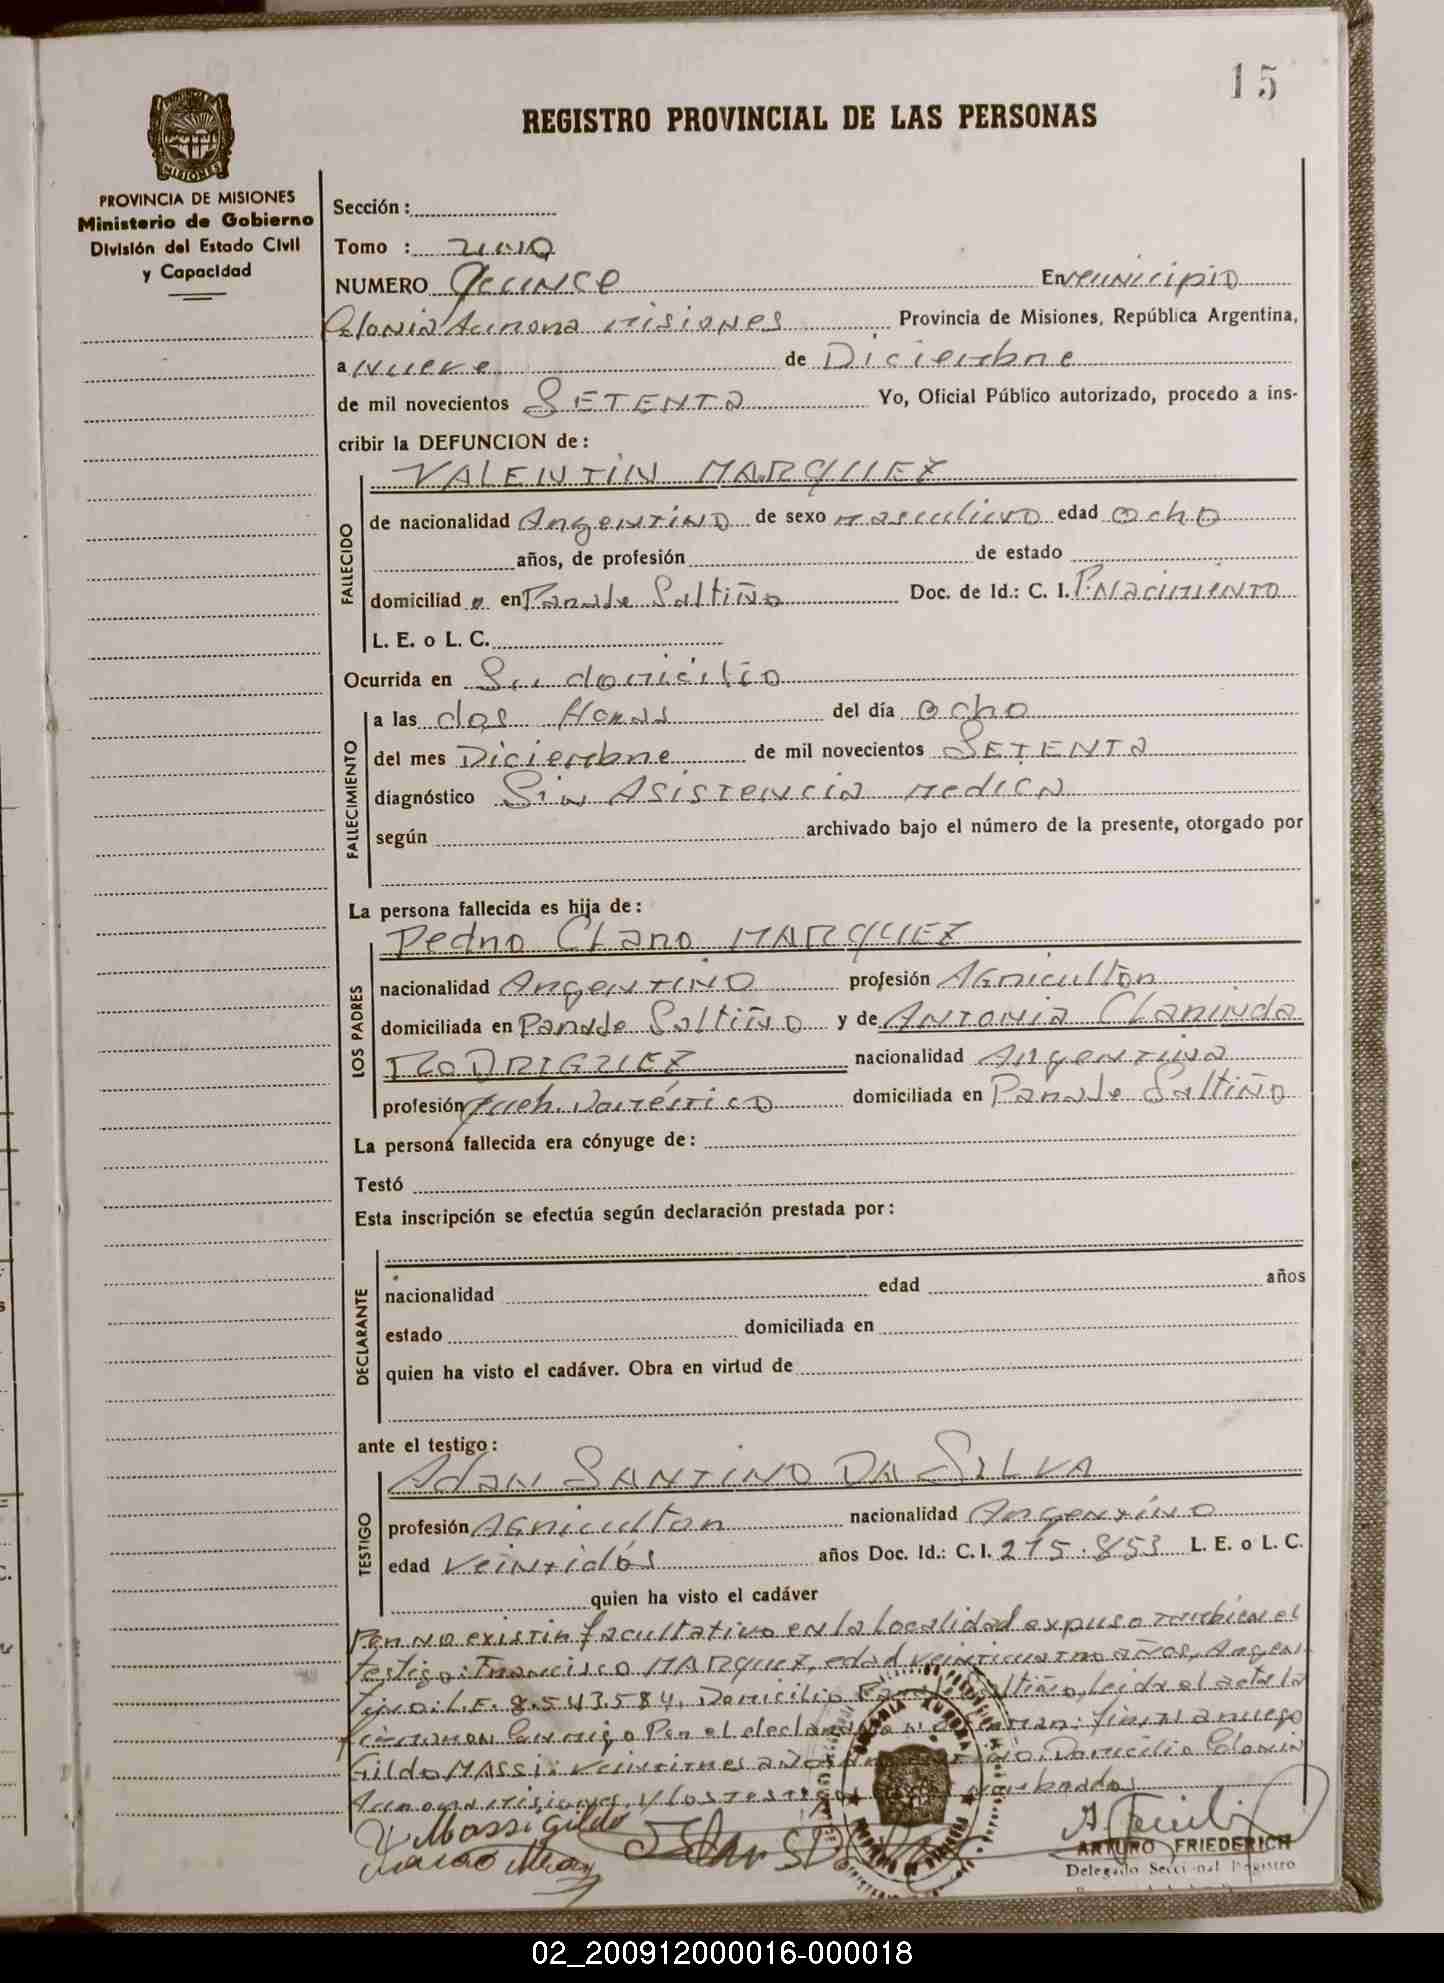 15
REGISTRO PROVINCIAL DE LAS PERSONAS
PROVINCIA DE MISIONES
Ministerio de Gobierno
División del Estado Civil
y Capacidad
Sección :
Tomo : UNO
NUMERO Quince En Municipio
Colonia Aurora Misiones Provincia de Misiones, República Argentina,
a Nueve de Diciembre
de mil novecientos SETENTA Yo, Oficial Público autorizado, procedo a ins-
cribir la DEFUNCION de :
VALENTIN MARQUEZ
FALLECIDO
de nacionalidad Argentino de sexo masculino edad Ocho
años, de profesión de estado
domiciliad o en Paraje Saltiño Doc. de Id.: C. I. P. Nacimiento
L. E. o L. C.
Ocurrida en Su domicilio
FALLECIMIENTO
a las dos Horas del día Ocho
del mes Diciembre de mil novecientos SETENTA
diagnóstico Sin Asistencia Medica
según archivado bajo el número de la presente, otorgado por
La persona fallecida es hija de :
LOS PADRES
Pedro Claro MARQUEZ
nacionalidad Argentino profesión Agricultor
domiciliada en Paraje Saltiño y de ANTONIA Clarinda
RODRIGUEZ nacionalidad Argentina
profesión Queh. Doméstico domiciliada en Paraje Saltiño
La persona fallecida era cónyuge de :
Testó
Esta inscripción se efectúa según declaración prestada por :
DECLARANTE
nacionalidad edad años
estado domiciliada en
quien ha visto el cadáver. Obra en virtud de
ante el testigo :
TESTIGO
Adan SANTINO DA SILVA
profesión Agricultor nacionalidad Argentino
edad Veintidós años Doc. Id.: C. I. 275.853 L. E. o L. C.
quien ha visto el cadáver
Por no existir facultativo en la localidad expuso también el
testigo: Francisco MARQUEZ, edad veinticuatro años, Argen-
tino: L.E. 8.543.584, Domicilio Saltiño, leida el acta la
firmaron Conmigo Por el firma a ruego
Gildo MASSI: Veintitres años Domicilio Colonia
Aurora Misiones, y los testigos nombrados
COLONIA AURORA
Massi Gildo
ARTURO FRIEDERICH
Delegado Seccional Registro
02_200912000016-000018